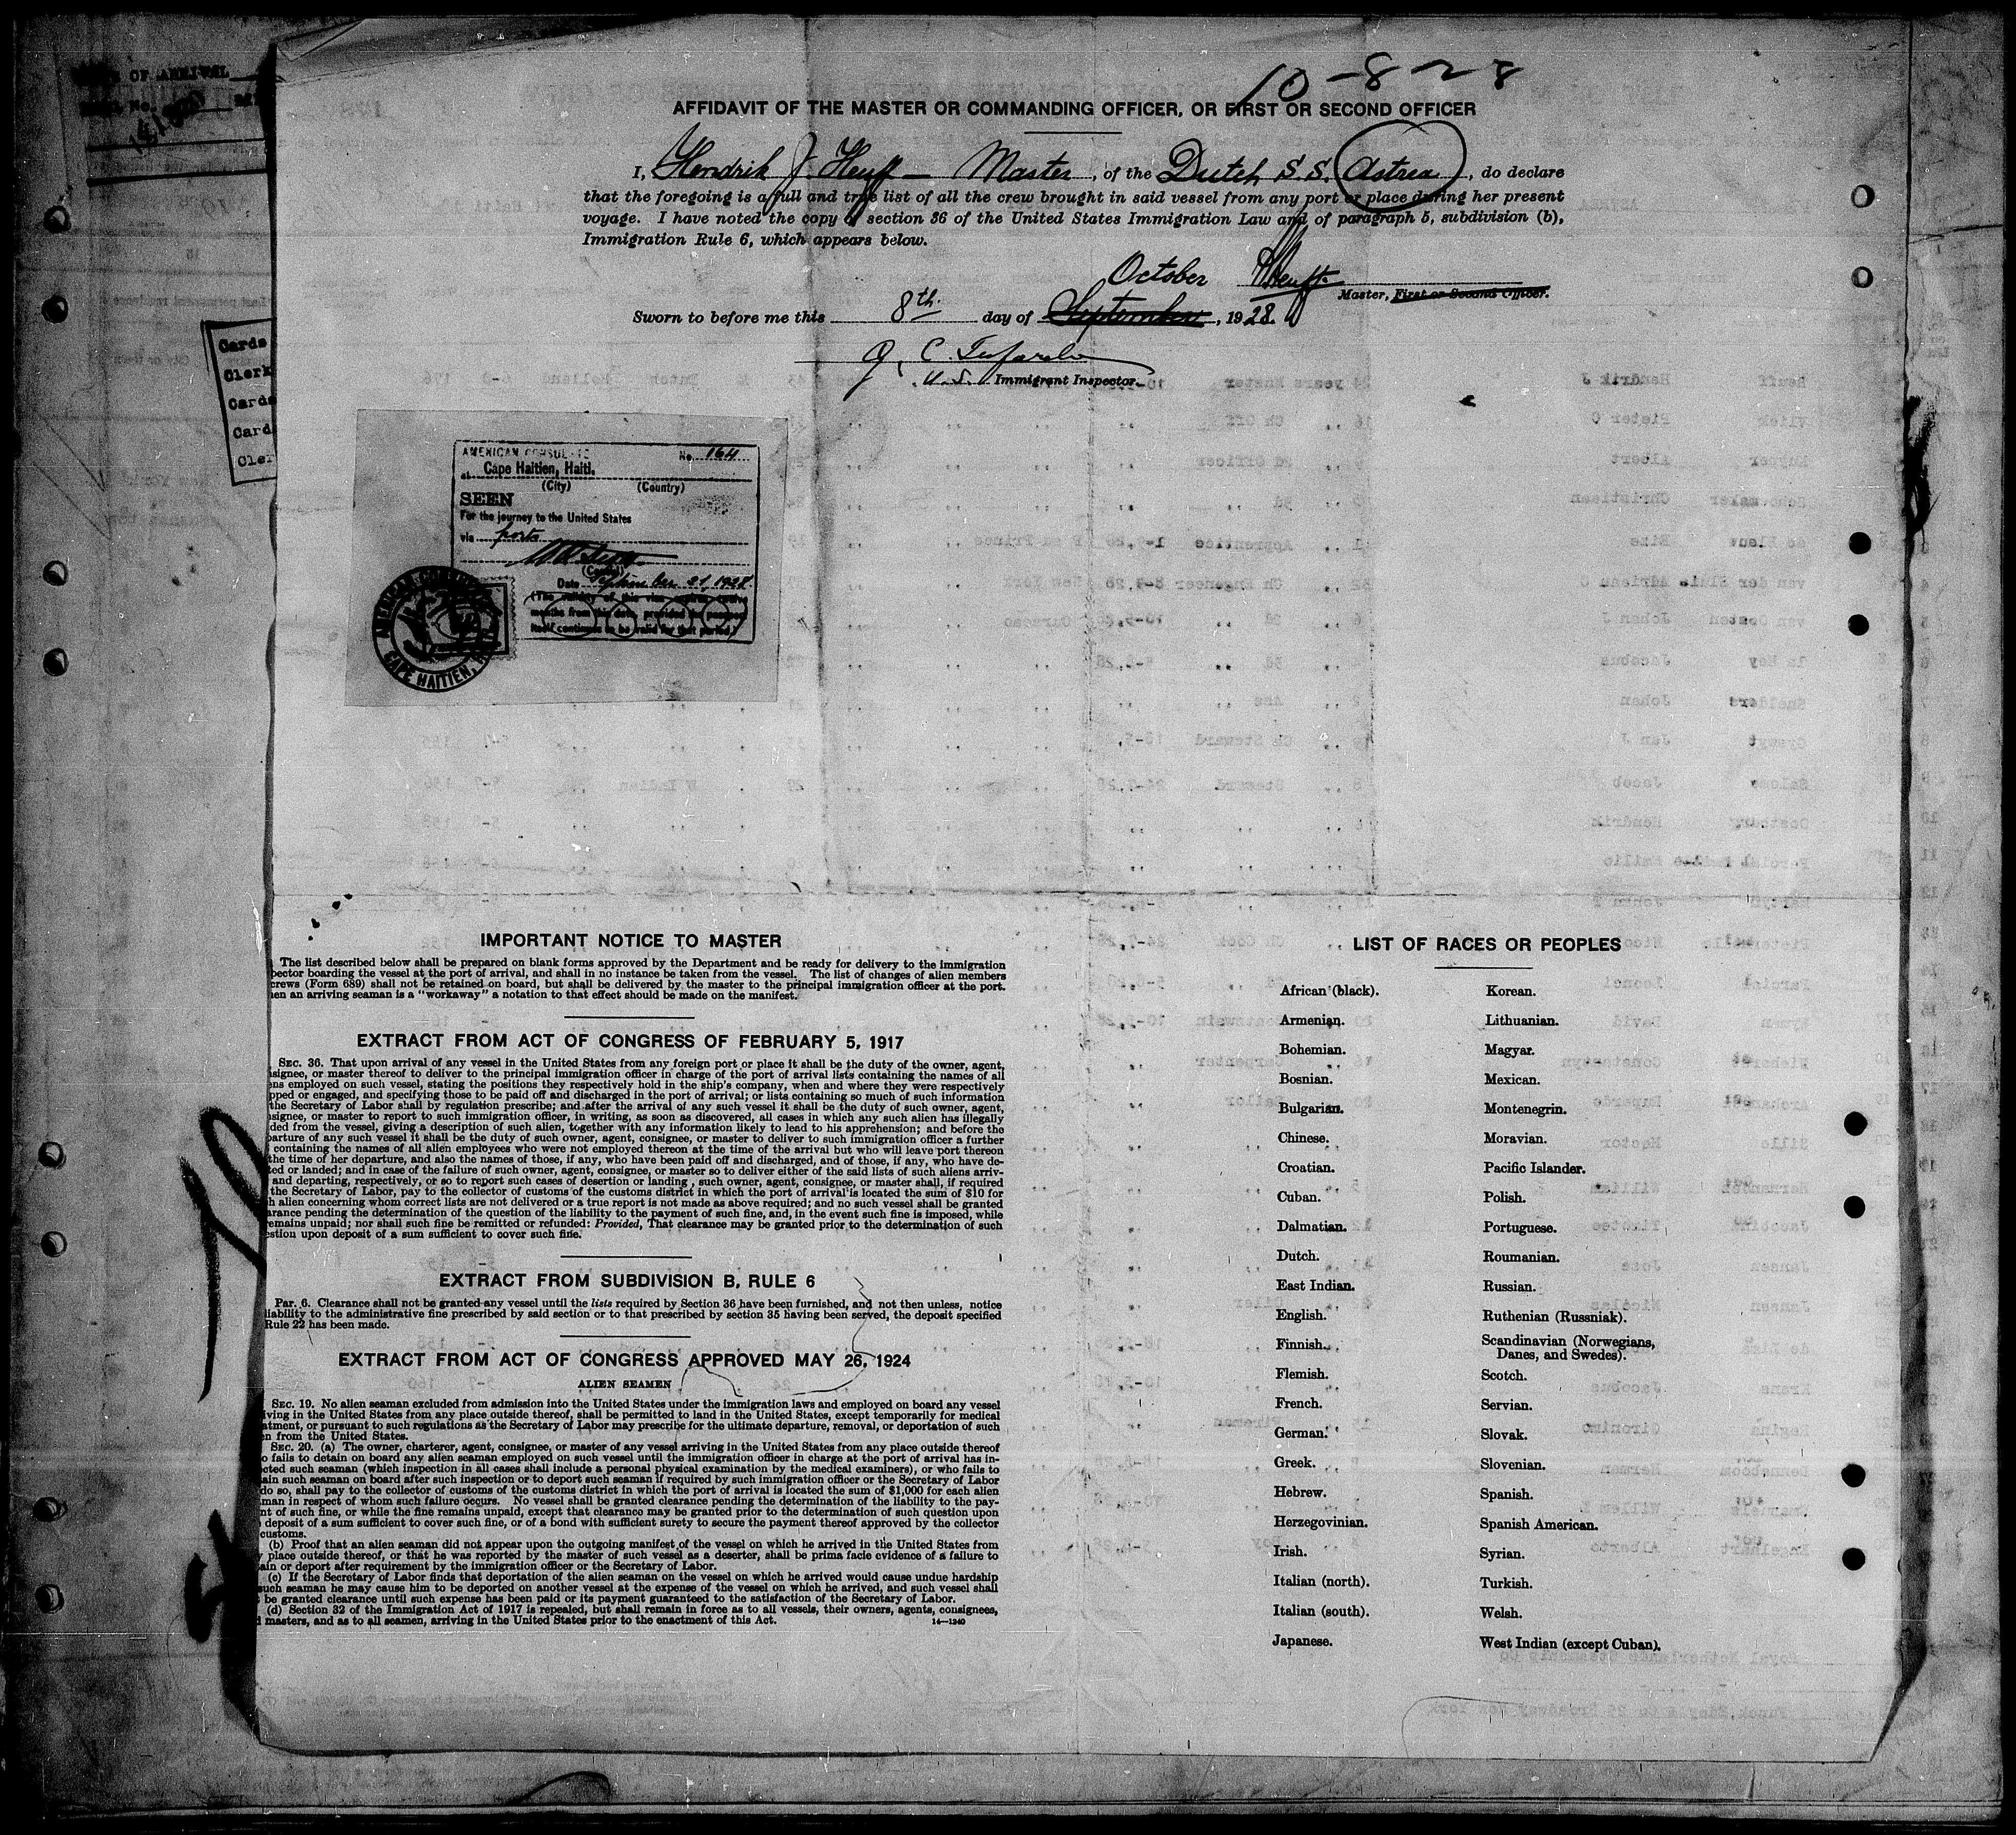 10-8-28
OF ARRIVAL
No.
AFFIDAVIT OF THE MASTER OR COMMANDING OFFICER, OR FIRST OR SECOND OFFICER
I, Hendrik J. Heuff — Master, of the Dutch S.S. Astrea, do declare
that the foregoing is a full and true list of all the crew brought in said vessel from any port or place during her present
voyage. I have noted the copy of section 36 of the United States Immigration Law and of paragraph 5, subdivision (b),
Immigration Rule 6, which appears below.
October HHeuff.
Master, First or Second Officer.
Sworn to before me this 8th. day of September, 1928.
U.S. Immigrant Inspector.
Cards
Clerk
Cards
Card
Cler
AMERICAN CONSULATE No. 164
at Cape Haitien, Haiti.
(City) (Country)
SEEN
For the journey to the United States
via ports
(Consul)
Date September 21, 1928
(The validity of this visa expires twelve
months from this date, provided the passport
itself continues to be valid for that period.)
AMERICAN CONSULATE
CAPE HAITIEN, HAITI
IMPORTANT NOTICE TO MASTER
The list described below shall be prepared on blank forms approved by the Department and be ready for delivery to the immigration
pector boarding the vessel at the port of arrival, and shall in no instance be taken from the vessel. The list of changes of alien members
crews (Form 689) shall not be retained on board, but shall be delivered by the master to the principal immigration officer at the port.
en an arriving seaman is a "workaway" a notation to that effect should be made on the manifest.
EXTRACT FROM ACT OF CONGRESS OF FEBRUARY 5, 1917
SEC. 36. That upon arrival of any vessel in the United States from any foreign port or place it shall be the duty of the owner, agent,
signee, or master thereof to deliver to the principal immigration officer in charge of the port of arrival lists containing the names of all
ens employed on such vessel, stating the positions they respectively hold in the ship's company, when and where they were respectively
pped or engaged, and specifying those to be paid off and discharged in the port of arrival; or lists containing so much of such information
the Secretary of Labor shall by regulation prescribe; and after the arrival of any such vessel it shall be the duty of such owner, agent,
signee, or master to report to such immigration officer, in writing, as soon as discovered, all cases in which any such alien has illegally
ded from the vessel, giving a description of such alien, together with any information likely to lead to his apprehension; and before the
parture of any such vessel it shall be the duty of such owner, agent, consignee, or master to deliver to such immigration officer a further
containing the names of all alien employees who were not employed thereon at the time of the arrival but who will leave port thereon
the time of her departure, and also the names of those, if any, who have been paid off and discharged, and of those, if any, who have de-
ted or landed; and in case of the failure of such owner, agent, consignee, or master so to deliver either of the said lists of such aliens arriv-
and departing, respectively, or so to report such cases of desertion or landing, such owner, agent, consignee, or master shall, if required
the Secretary of Labor, pay to the collector of customs of the customs district in which the port of arrival is located the sum of $10 for
h alien concerning whom correct lists are not delivered or a true report is not made as above required; and no such vessel shall be granted
arance pending the determination of the question of the liability to the payment of such fine, and, in the event such fine is imposed, while
emains unpaid; nor shall such fine be remitted or refunded: Provided, That clearance may be granted prior to the determination of such
estion upon deposit of a sum sufficient to cover such fine.
EXTRACT FROM SUBDIVISION B, RULE 6
Par. 6. Clearance shall not be granted any vessel until the lists required by Section 36 have been furnished, and not then unless, notice
liability to the administrative fine prescribed by said section or to that prescribed by section 35 having been served, the deposit specified
Rule 22 has been made.
EXTRACT FROM ACT OF CONGRESS APPROVED MAY 26, 1924
ALIEN SEAMEN
SEC. 19. No alien seaman excluded from admission into the United States under the immigration laws and employed on board any vessel
iving in the United States from any place outside thereof, shall be permitted to land in the United States, except temporarily for medical
atment, or pursuant to such regulations as the Secretary of Labor may prescribe for the ultimate departure, removal, or deportation of such
n from the United States.
SEC. 20. (a) The owner, charterer, agent, consignee, or master of any vessel arriving in the United States from any place outside thereof
o fails to detain on board any alien seaman employed on such vessel until the immigration officer in charge at the port of arrival has in-
cted such seaman (which inspection in all cases shall include a personal physical examination by the medical examiners), or who fails to
ain such seaman on board after such inspection or to deport such seaman if required by such immigration officer or the Secretary of Labor
do so, shall pay to the collector of customs of the customs district in which the port of arrival is located the sum of $1,000 for each alien
man in respect of whom such failure occurs. No vessel shall be granted clearance pending the determination of the liability to the pay-
nt of such fine, or while the fine remains unpaid, except that clearance may be granted prior to the determination of such question upon
deposit of a sum sufficient to cover such fine, or of a bond with sufficient surety to secure the payment thereof approved by the collector
customs.
(b) Proof that an alien seaman did not appear upon the outgoing manifest of the vessel on which he arrived in the United States from
y place outside thereof, or that he was reported by the master of such vessel as a deserter, shall be prima facie evidence of a failure to
ain or deport after requirement by the immigration officer or the Secretary of Labor.
(c) If the Secretary of Labor finds that deportation of the alien seaman on the vessel on which he arrived would cause undue hardship
such seaman he may cause him to be deported on another vessel at the expense of the vessel on which he arrived, and such vessel shall
be granted clearance until such expense has been paid or its payment guaranteed to the satisfaction of the Secretary of Labor.
(d) Section 32 of the Immigration Act of 1917 is repealed, but shall remain in force as to all vessels, their owners, agents, consignees,
masters, and as to all seamen, arriving in the United States prior to the enactment of this Act.
14—1240
LIST OF RACES OR PEOPLES
African (black).
Armenian.
Bohemian.
Bosnian.
Bulgarian.
Chinese.
Croatian.
Cuban.
Dalmatian.
Dutch.
East Indian.
English.
Finnish.
Flemish.
French.
German.
Greek.
Hebrew.
Herzegovinian.
Irish.
Italian (north).
Italian (south).
Japanese.
Korean.
Lithuanian.
Magyar.
Mexican.
Montenegrin.
Moravian.
Pacific Islander.
Polish.
Portuguese.
Roumanian.
Russian.
Ruthenian (Russniak).
Scandinavian (Norwegians,
Danes, and Swedes).
Scotch.
Servian.
Slovak.
Slovenian.
Spanish.
Spanish American.
Syrian.
Turkish.
Welsh.
West Indian (except Cuban).